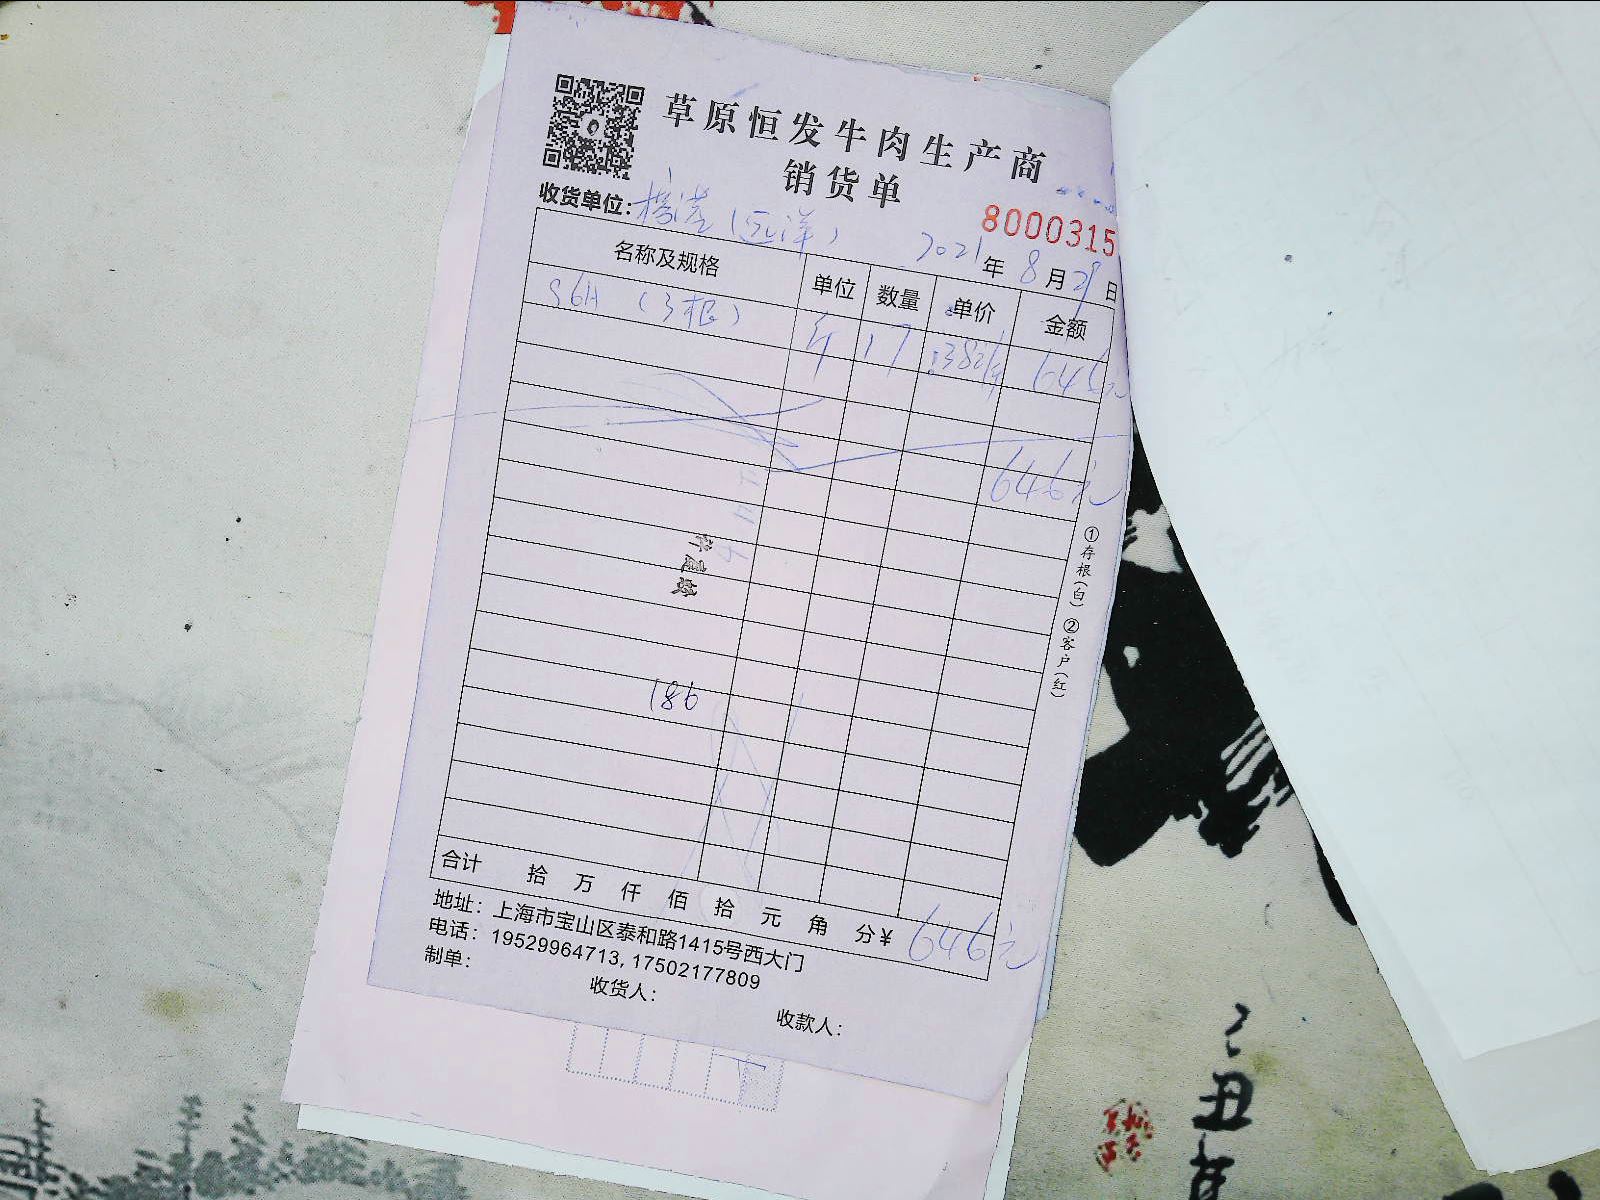 草原恒发牛肉生产商
销货单
收货单位：杨浩（远洋）
8000315
2021年8月29日
名称及规格 单位 数量 单价 金额
S6H（3根） 斤 17 38元/斤 646元
646元
①存根（白）②客户（红）
186
合计 拾 万 仟 佰 拾 元 角 分￥646元
地址：上海市宝山区泰和路1415号西大门
电话：19529964713, 17502177809
制单：
收货人：
收款人：
丑